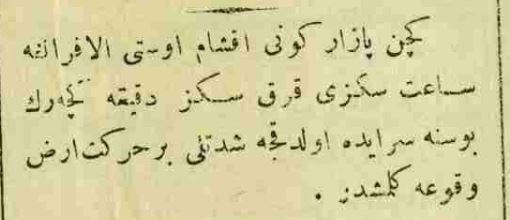 كچن پازار كونی اقشام اوستی الافرانغه
ساعت سكزی قرق سكز دقیقه كچه‌رك
بوسنه سرایده اولدقجه شدتلی بر حركت ارض
وقوعه كلمشدر .